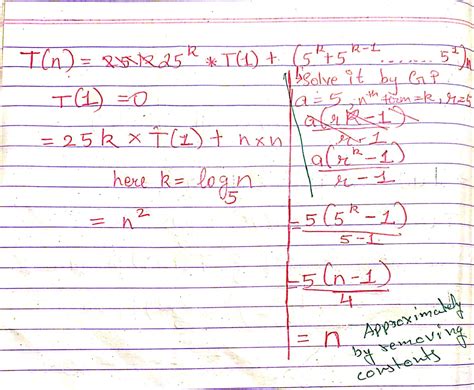 T(n) = 25^k * T(1) + (5^k + 5^k-1 ........ 5^1)n
T(1) = 0
= 25k × T(1) + n×n
here k = log_5 n
= n^2
Solve it by G.P.
a = 5, n^th term = k, r = 5
a(r^k - 1)
r - 1
a(r^k - 1)
r - 1
= 5(5^k - 1)
5 - 1
= 5(n - 1)
4
= n
Approximately
by removing
constants